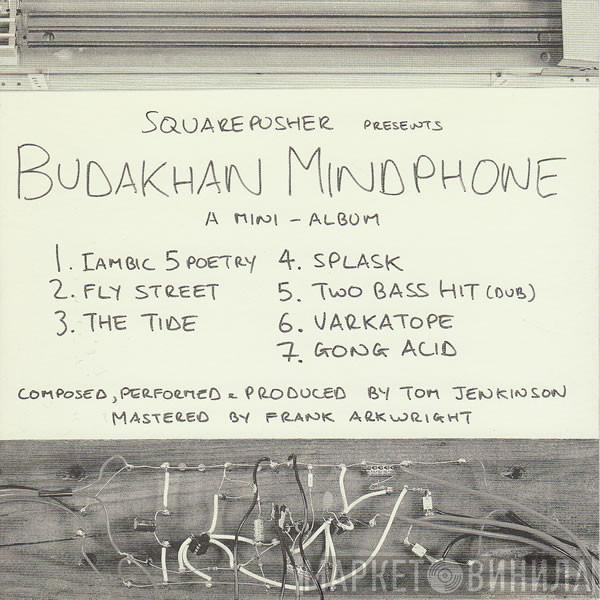 SQUAREPUSHER PRESENTS
BUDAKHAN MINDPHONE
A MINI-ALBUM
1. IAMBIC 5 POETRY
2. FLY STREET
3. THE TIDE
4. SPLASK
5. TWO BASS HIT (DUB)
6. VARKATOPE
7. GONG ACID
COMPOSED, PERFORMED & PRODUCED BY TOM JENKINSON
MASTERED BY FRANK ARKWRIGHT
МАРКЕТ ВИНИЛА